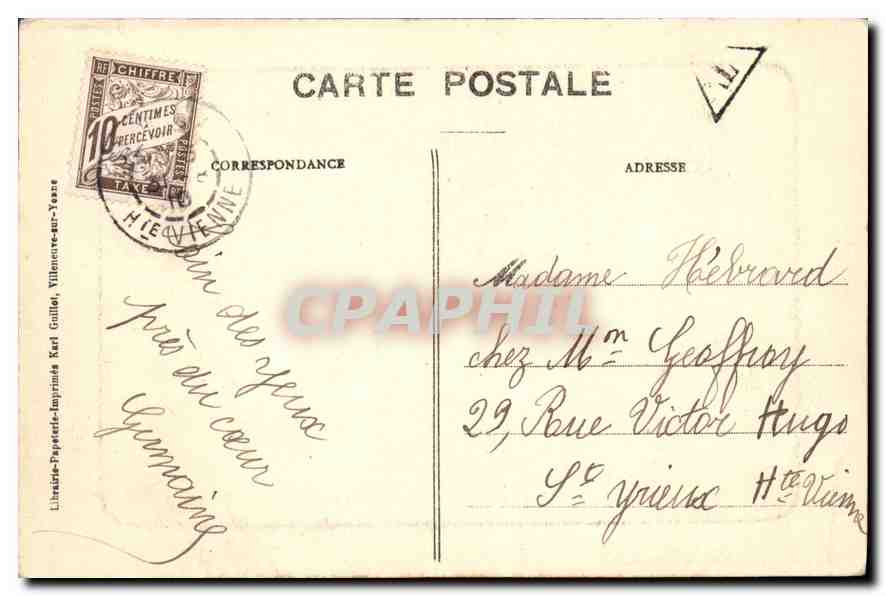 CARTE POSTALE
T
RF
CHIFFRE
POSTES
10
CENTIMES
À
PERCEVOIR
POSTES
TAXE
RF
10
HTE VIENNE
CORRESPONDANCE
ADRESSE
Loin des yeux
près du cœur
Germaine
Madame Hébrard
chez Mon Geoffroy
29, Rue Victor Hugo
St Yrieux Hte Vienne
Librairie-Papeterie-Imprimés Karl Guillot, Villeneuve-sur-Yonne
CPAPHIL